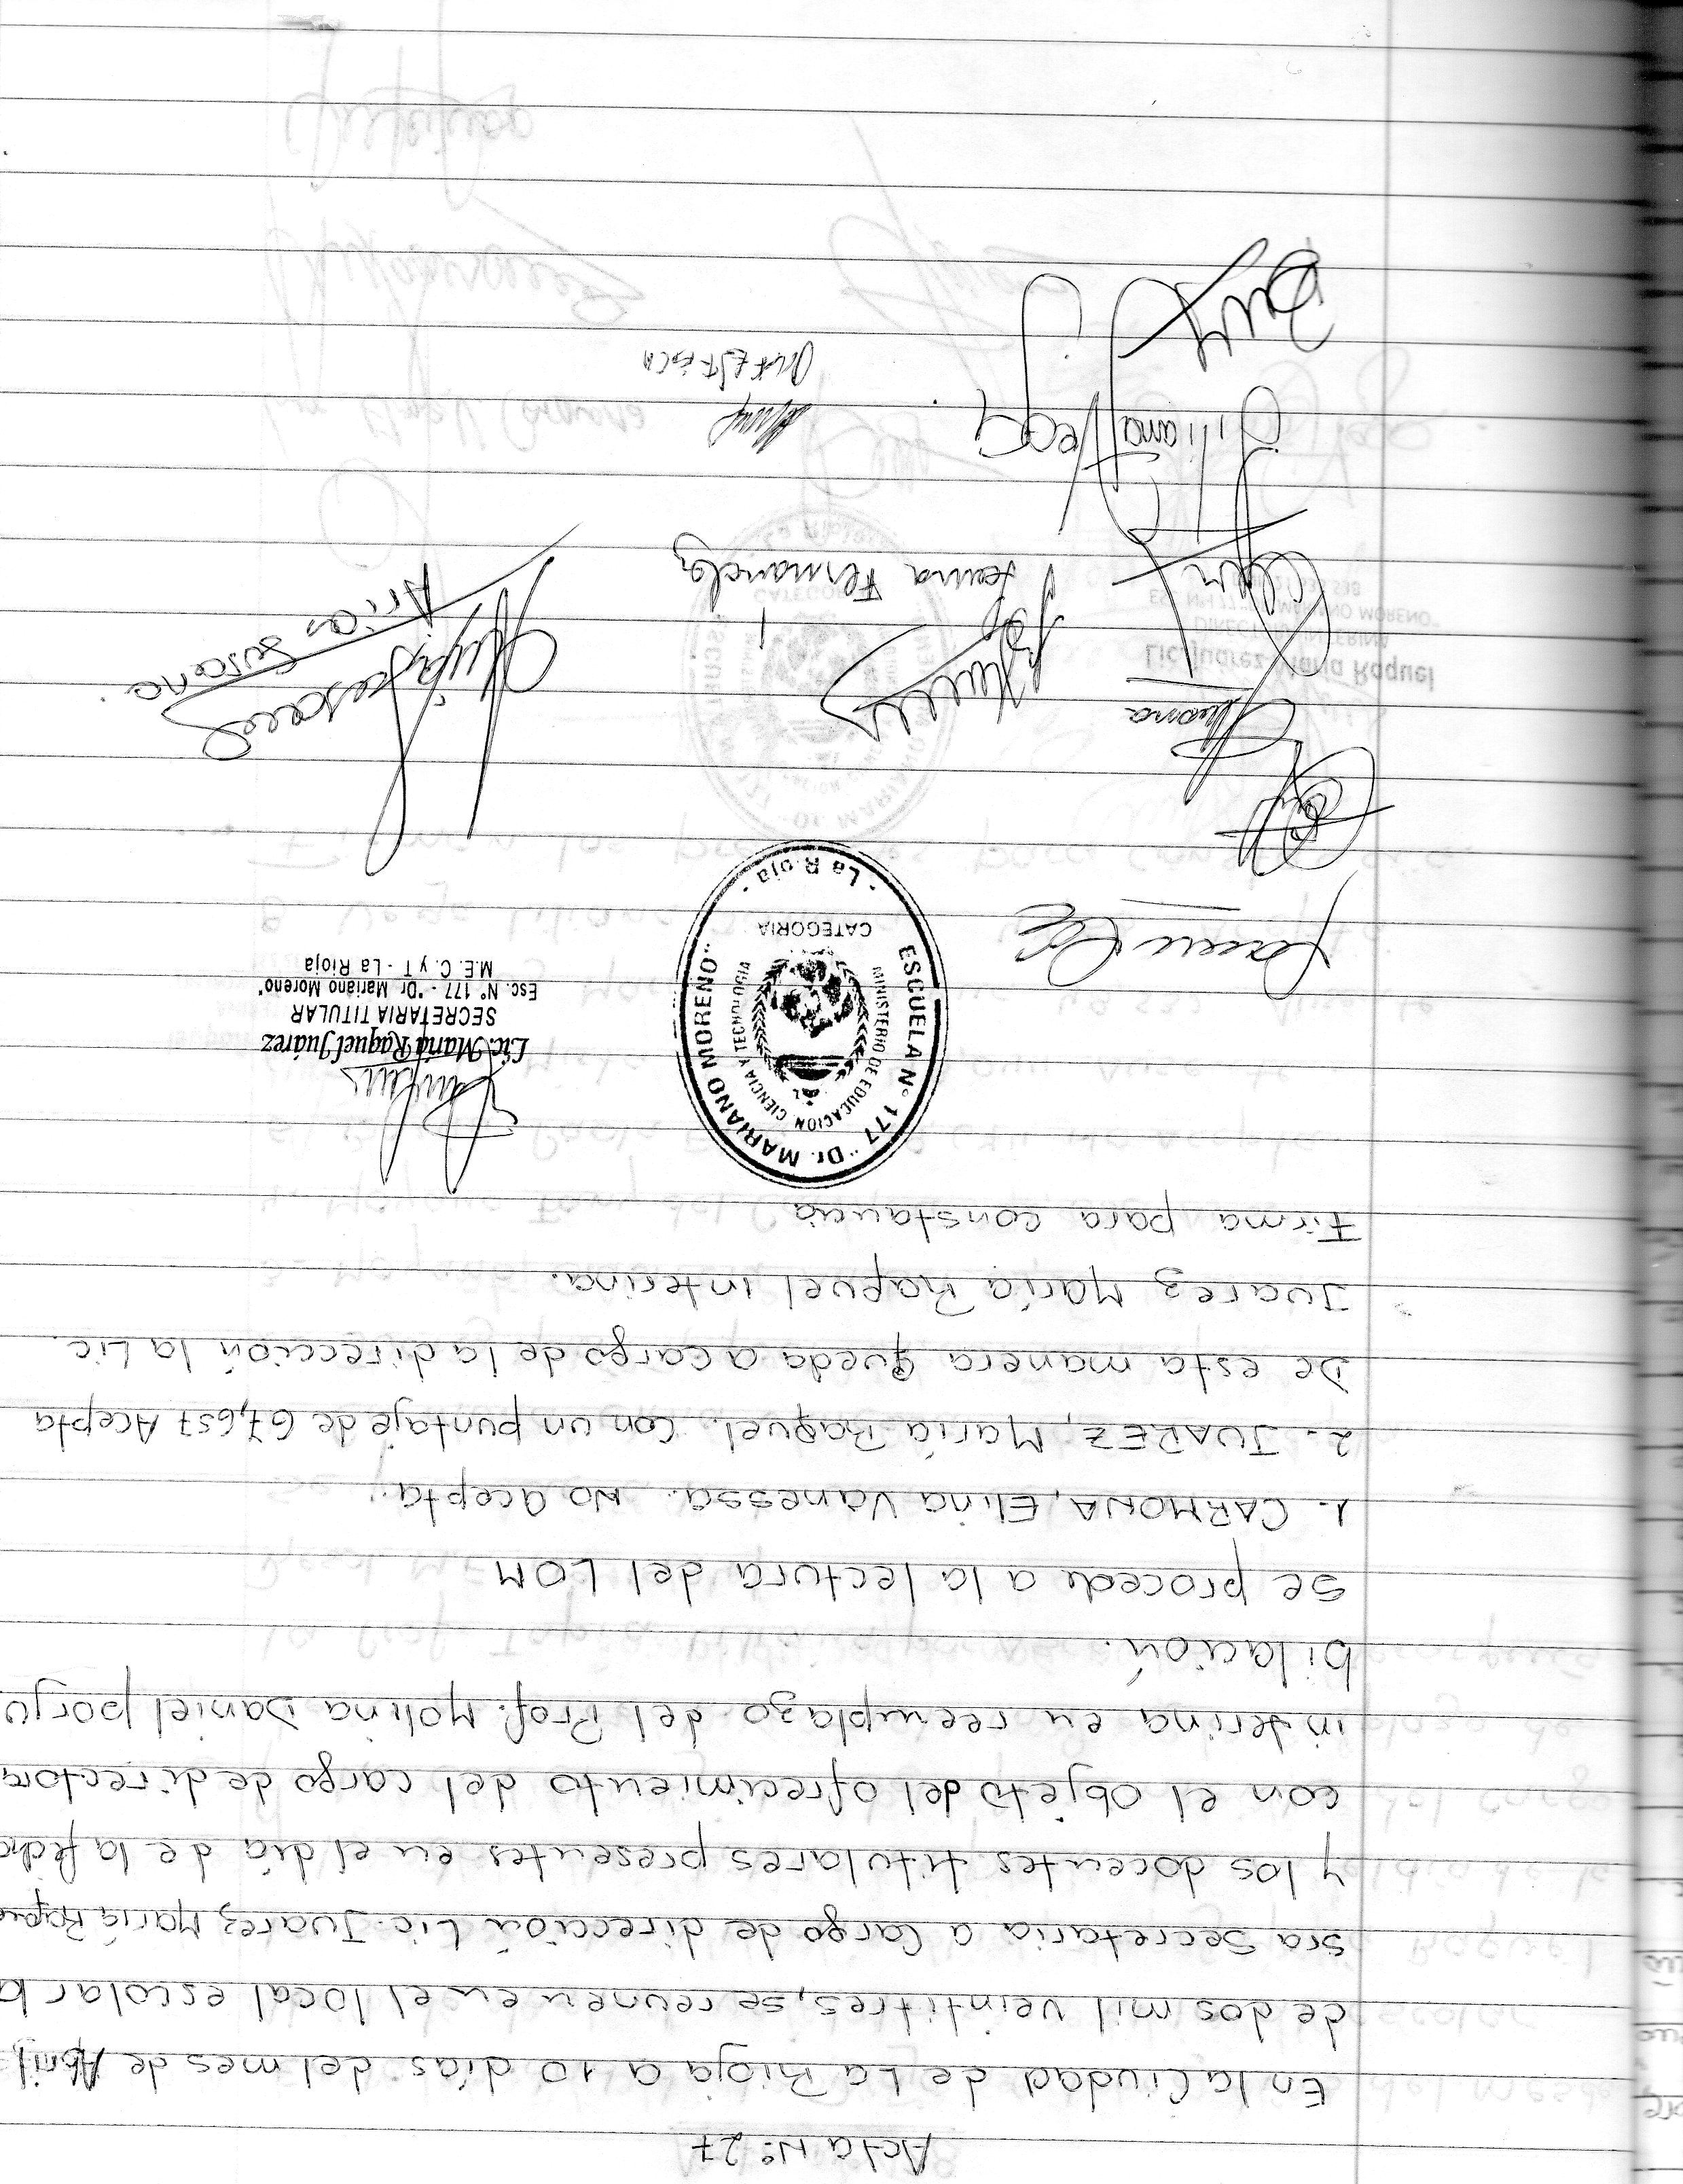 Acta Nº 27
En la Ciudad de La Rioja a 10 días del mes de Abril
de dos mil veintitres, se reunen en el local escolar la
Sra Secretaria a Cargo de dirección Lic. Juarez María Raquel
y los docentes titulares presentes en el día de la fecha
con el objeto del ofrecimiento del cargo de directora
interina en reemplazo del Prof. Molina Daniel por ju
bilación.
Se procede a la lectura del LOM
1- CARMONA, Elina Vanessa. No acepta.
2- JUAREZ, María Raquel. Con un puntaje de 67,657 Acepta
De esta manera queda a cargo de la dirección la Lic.
Juarez María Raquel interina.
Firma para constancia
ESCUELA Nº 177 "Dr. MARIANO MORENO"
MINISTERIO DE EDUCACION CIENCIA Y TECNOLOGIA
CATEGORIA
- La Rioja -
Lic. María Raquel Juárez
SECRETARIA TITULAR
Esc. Nº 177 - "Dr. Mariano Moreno"
M.E.C. y T - La Rioja
Arias Susana
Fernandez
Liliana Vega